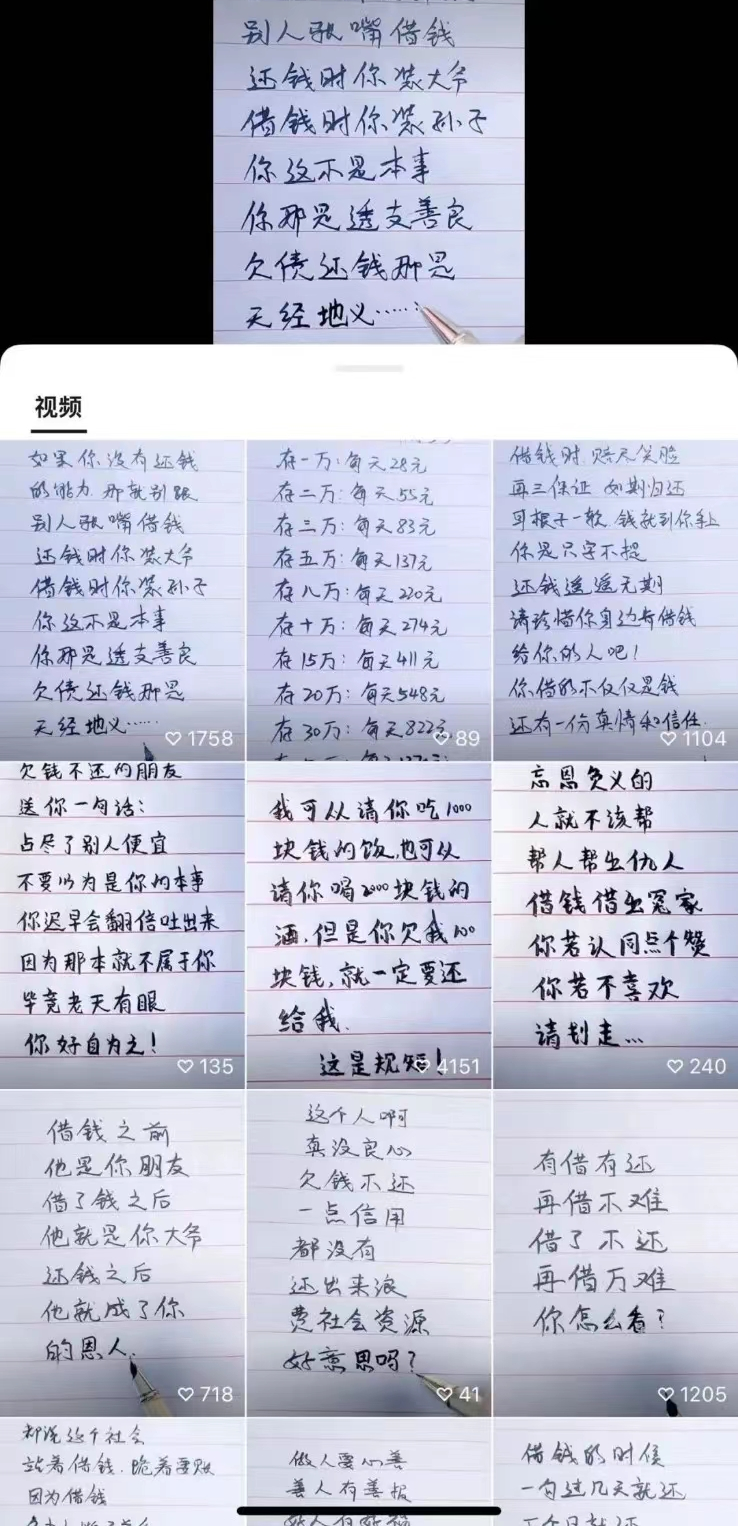 别人张嘴借钱
还钱时你装大爷
借钱时你装孙子
你这不是本事
你那是透支善良
欠债还钱那是
天经地义……
视频
如果你没有还钱
的能力，那就别跟
别人张嘴借钱
还钱时你装大爷
借钱时你装孙子
你这不是本事
你那是透支善良
欠债还钱那是
天经地义……
1758
存一万：每天28元
存二万：每天55元
存三万：每天83元
存五万：每天137元
存八万：每天220元
存十万：每天274元
存15万：每天411元
存20万：每天548元
存30万：每天822元
89
借钱时，赔尽笑脸
再三保证 如期归还
耳根子一软，钱就到你手上
你是只字不提
还钱遥遥无期
请珍惜你身边每借钱
给你的人吧！
你借的不仅仅是钱
还有一份真情和信任.
1104
欠钱不还的朋友
送你一句话：
占尽了别人便宜
不要以为是你的本事
你迟早会翻倍吐出来
因为那本就不属于你
毕竟老天有眼
你好自为之！
135
我可以请你吃1000
块钱的饭，也可以
请你喝2000块钱的
酒，但是你欠我100
块钱，就一定要还
给我.
这是规矩！
4151
忘恩负义的
人就不该帮
帮人帮出仇人
借钱借出冤家
你若认同点个赞
你若不喜欢
请划走...
240
借钱之前
他是你朋友
借了钱之后
他就是你大爷
还钱之后
他就成了你
的恩人.
718
这个人啊
真没良心
欠钱不还
一点信用
都没有
还出来浪
费社会资源
好意思吗？
41
有借有还
再借不难
借了不还
再借万难
你怎么看？
1205
却说这个社会
站着借钱，跪着要账
因为借钱
做人要心善
善人有善报
借钱的时候
一句过几天就还